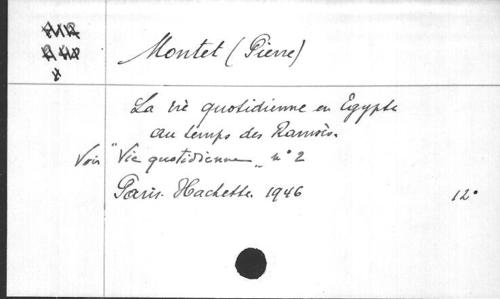 Montet (Pierre)
La vie quotidienne en Egypte
au temps des Ramsès.
Voir "Vie quotidienne" n° 2
Paris. Hachette. 1946 12°